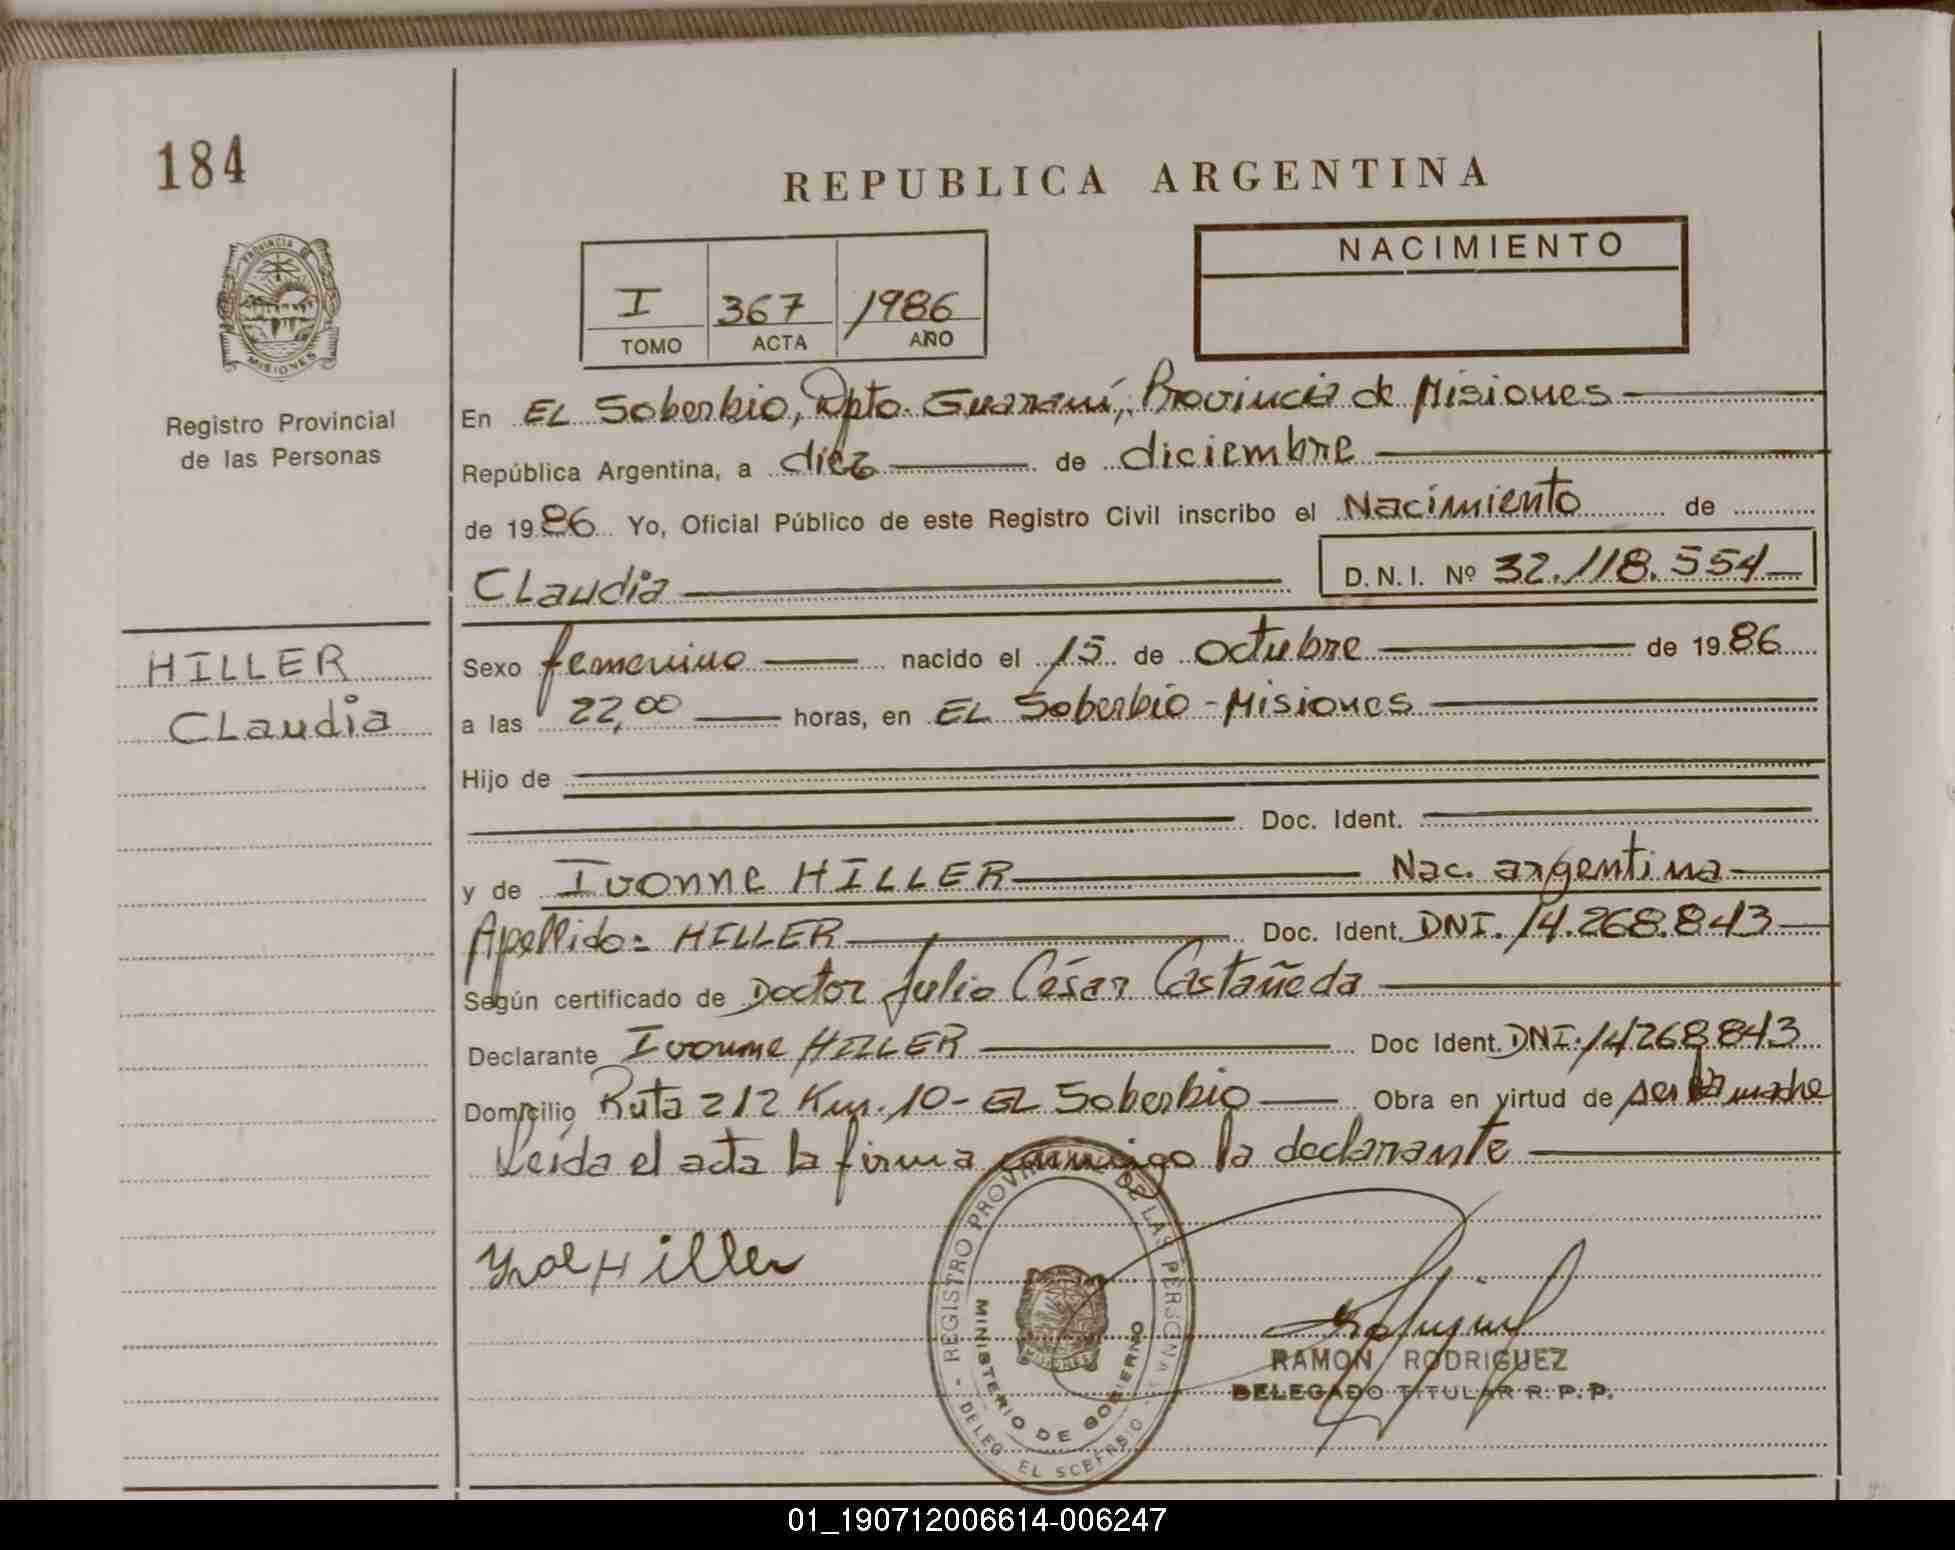 184
REPUBLICA ARGENTINA
PROVINCIA DE
MISIONES
Registro Provincial
de las Personas
I 367 1986
TOMO ACTA AÑO
NACIMIENTO
En EL Soberbio, Dpto. Guaraní, Provincia de Misiones
República Argentina, a diez de diciembre
de 1986 Yo, Oficial Público de este Registro Civil inscribo el Nacimiento de
Claudia D.N.I. Nº 32.118.554
HILLER
Claudia
Sexo femenino nacido el 15 de octubre de 1986
a las 22,00 horas, en EL Soberbio - Misiones
Hijo de
Doc. Ident.
y de Ivonne HILLER Nac. argentina
Apellido: HILLER Doc. Ident. DNI. 14.268.843
Según certificado de Doctor Julio César Castañeda
Declarante Ivonne HILLER Doc Ident. DNI. 14268843
Domicilio Ruta 212 Km. 10 - EL Soberbio Obra en virtud de ser la madre
Leída el acta la firma conmigo la declarante
Hiller
REGISTRO PROVINCIAL DE LAS PERSONAS
MINISTERIO DE GOBIERNO
DELEG. EL SOBERBIO
MISIONES
RAMON RODRIGUEZ
DELEGADO TITULAR R.P.P.
01_190712006614-006247